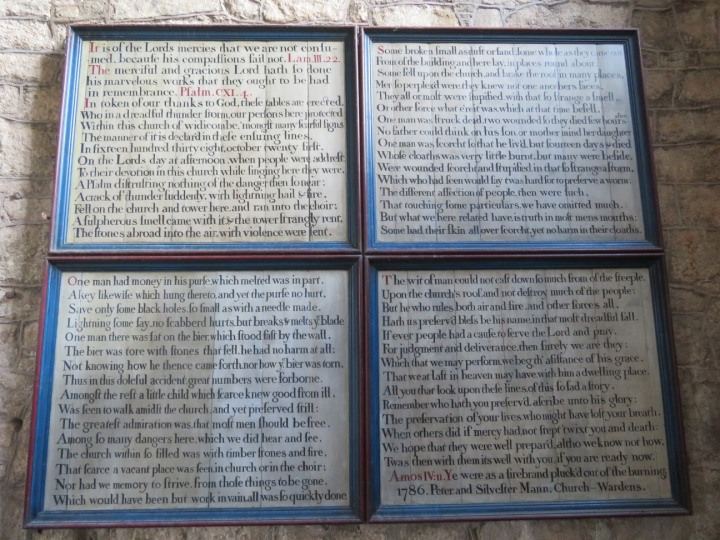 It is of the Lords mercies that we are not consu-
med, because his compassions fail not. Lam. III. 22.
The merciful and gracious Lord hath so done
his marvelous works that they ought to be had
in remembrance. Psalm. CXI. 4.
In token of our thanks to God, these tables are erected,
Who in a dreadful thunder storm, our persons here protected
Within this church of widicombe, 'mongst many fearful signs
The manner of it is declar'd in these ensuing lines,
In sixteen hundred thirty eight, october twenty first,
On the Lords day at afternoon, when people were addrest
To their devotion in this church while singing here they were,
A Psalm distrusting nothing of the danger then so near:
A crack of thunder suddenly, with lightning hail & fire,
Fell on the church and tower here, and ran into the choir:
A sulpherous smell came with it, & the tower strangly rent,
The stones abroad into the air, with violence were sent.
Some broken small as dust or sand, some whole as they came out
From of the building and here lay, in places round about
Some fell upon the church, and brake the roof in many places,
Men so perplexed were, they knew not one anothers faces,
They all or most were stupified with that so strange a smell,
Or other force what e'er it was, which at that time befell,
One man was struck dead, two wounded so they died few hours after
No father could think on his son or mother mind her daughter
One man was scorcht so that he liv'd, but fourteen days & died
Whose cloaths was very little burnt, but many were beside,
Were wounded scorcht and stupified in that so strange a storm,
Which who had seen would say 'twas hard for to preserve a worm.
The different affection of people, then were such,
That touching some particulars, we have omitted much,
But what we here related have, is truth in most mens mouths:
Some had their skin all over scorcht, yet no harm in their cloaths.
One man had money in his purse, which melted was in part,
A key likewise which hung thereto, and yet the purse no hurt,
Save only some black holes, so small as with a needle made,
Lightning some say, no scabberd hurts, but breaks & melts ye blade
One man there was sat on the bier, which stood fast by the wall,
The bier was tore with stones that fell, he had no harm at all:
Not knowing how he thence came forth, nor how ye bier was torn,
Thus in this doleful accident, great numbers were forborne.
Amongst the rest a little child which scarce knew good from ill,
Was seen to walk amidst the church, and yet preserved still:
The greatest admiration was, that most men should be free,
Among so many dangers here, which we did hear and see,
The church within so filled was with timber stones and fire,
That scarce a vacant place was seen, in church or in the choir:
Nor had we memory to strive, from those things to be gone,
Which would have been but work in vain, all was so quickly done
The wit of man could not cast down so much from of the steeple,
Upon the church's roof, and not destroy much of the people:
But he who rules, both air and fire, and other forces all,
Hath us preserv'd, bless be his name, in that most dreadful fall.
If ever people had a cause to serve the Lord and pray,
For judgment and deliverance, then surely we are they:
Which that we may perform, we beg th' assistance of his grace,
That we at last in heaven may have, with him a dwelling place.
All you that look upon these lines, of this so sad a story,
Remember who hath you preserv'd, ascribe unto his glory:
The preservation of your lives, who might have lost your breath,
When others did if mercy had not stept 'twixt you and death:
We hope that they were well prepar'd, altho we know not how,
Twas then with them, its well with you, if you are ready now.
Amos IV: 11. Ye were as a firebrand pluck'd out of the burning.
1786. Peter and Silvester Mann, Church-Wardens.